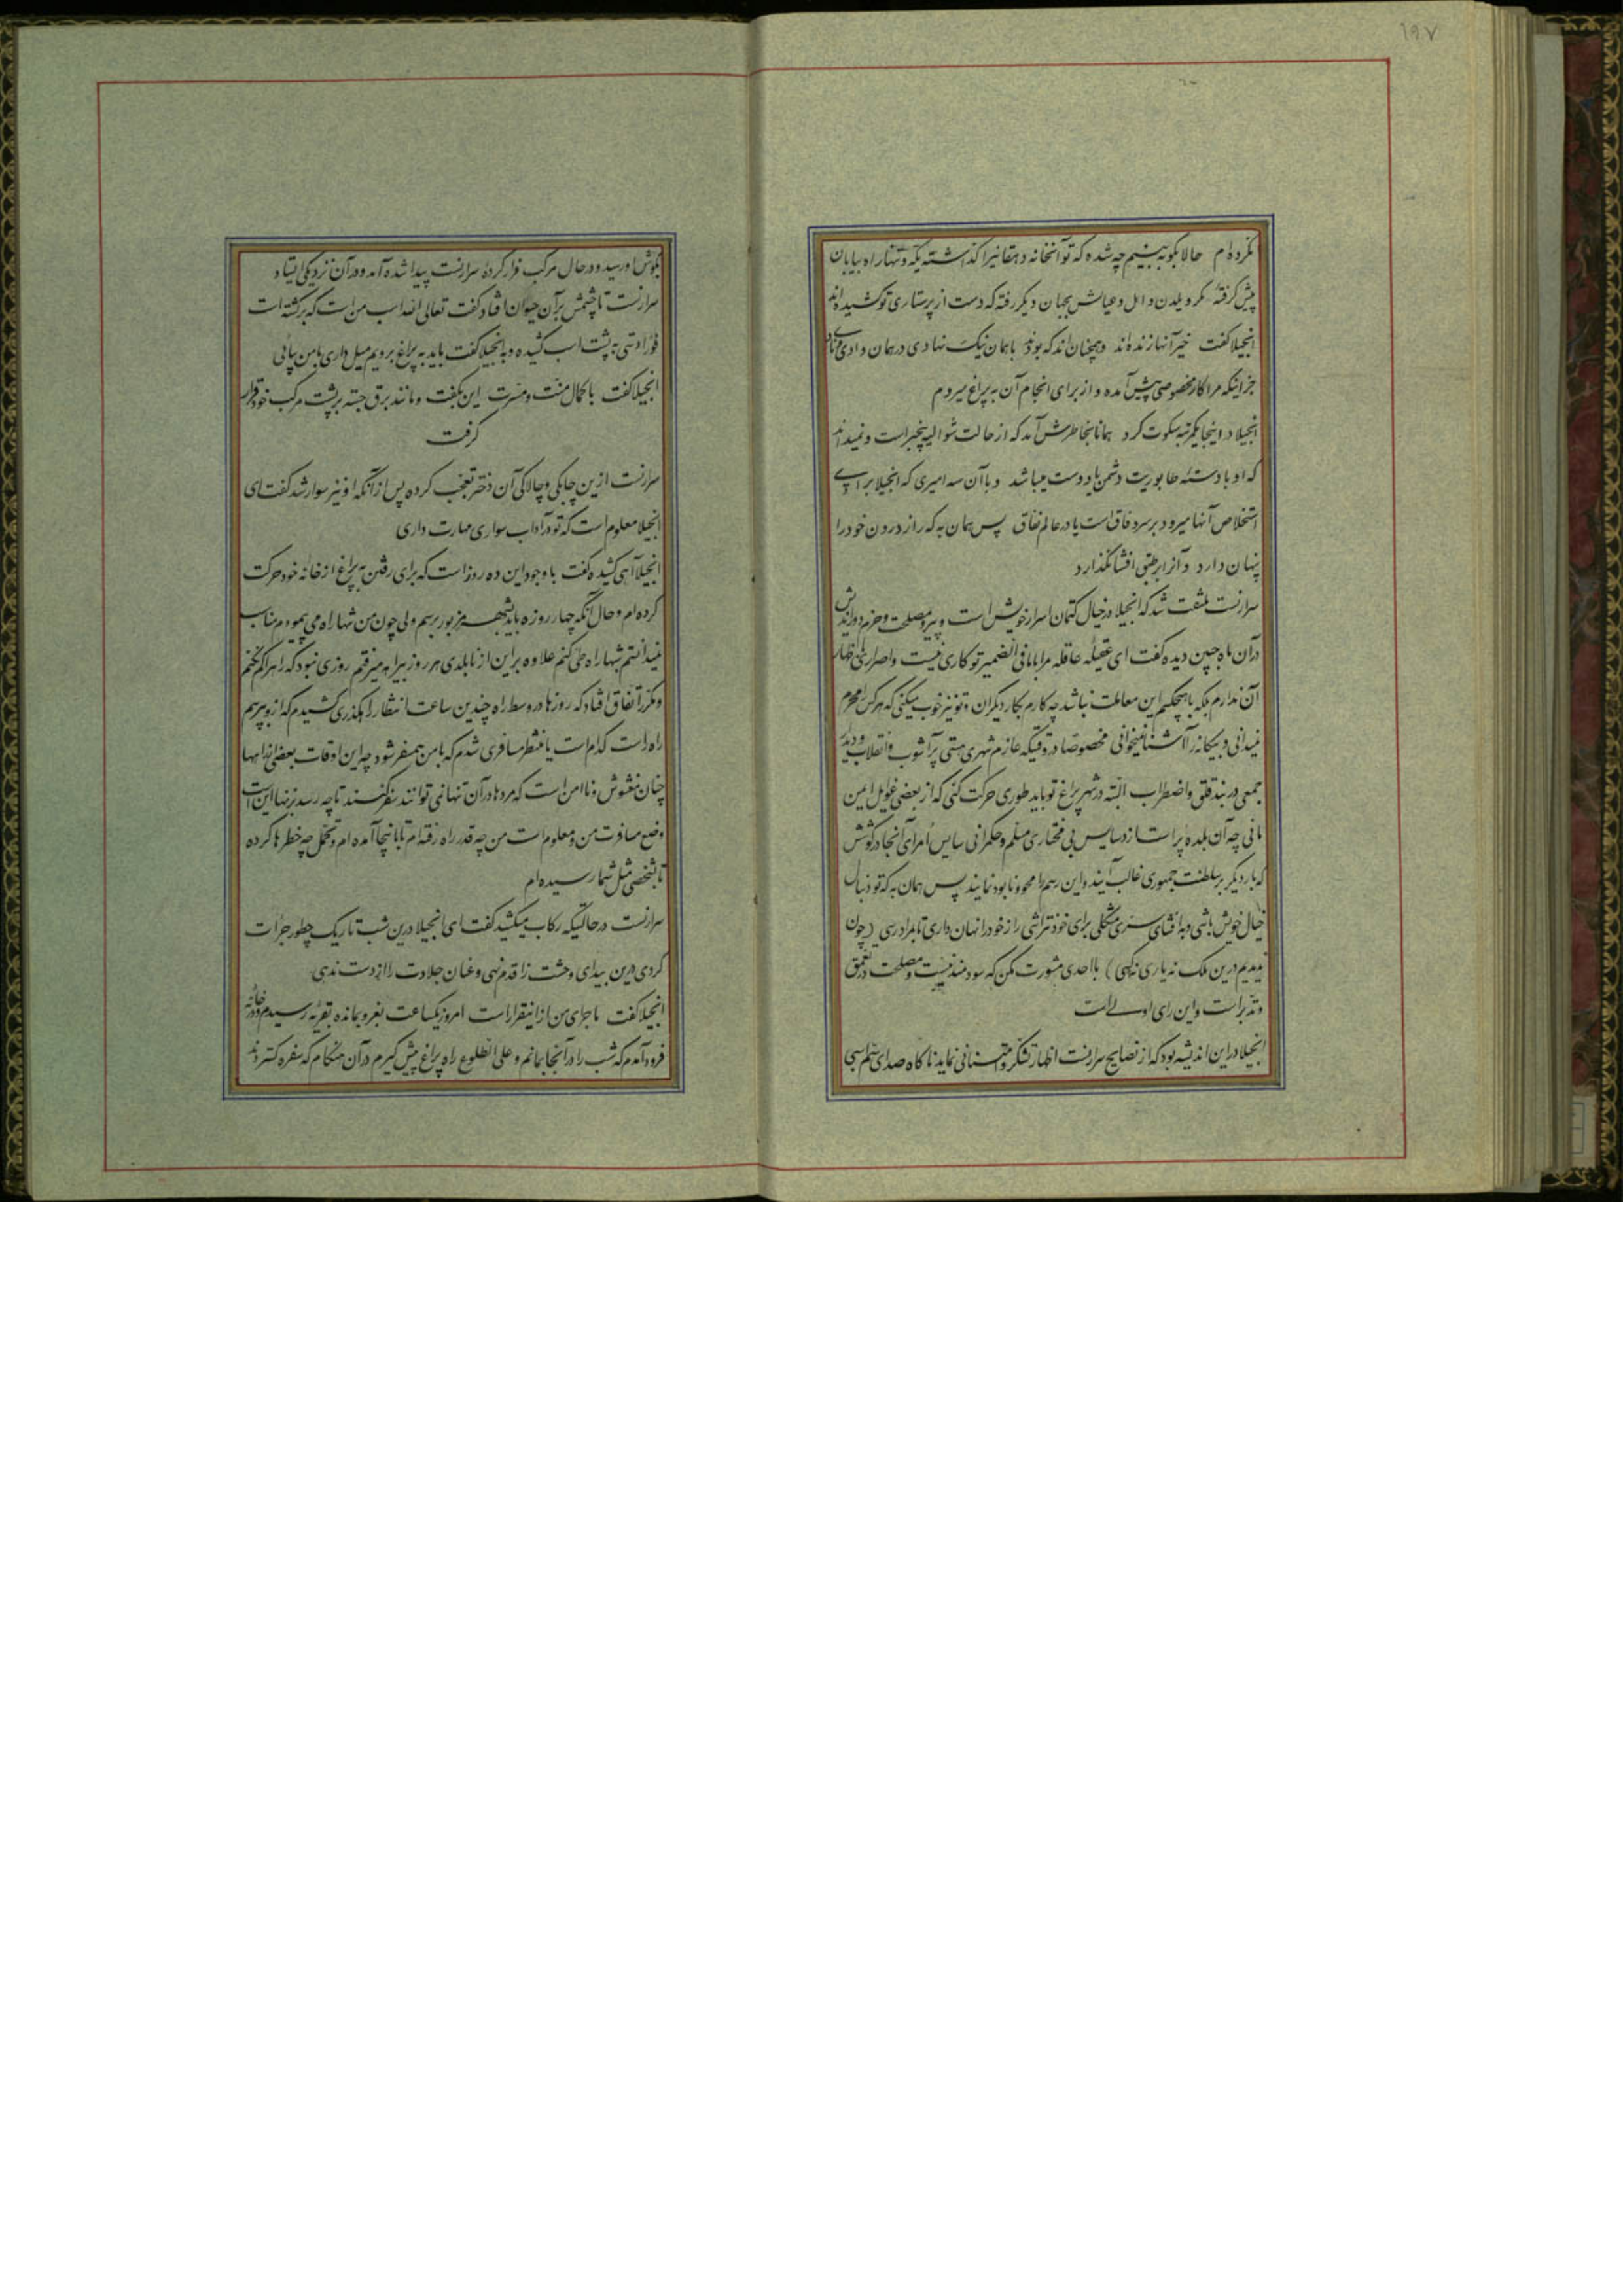 ۱۹۷
نکرده‌ام حالا بگو ببینیم چه شده که تو آنخانه دهقانیرا گذاشته یکه و تنها راه بیابان
پیش گرفته مگر ویلدن و اهل و عیالش بجهان دیگر رفته که دست از پرستاری تو کشیده‌اند
انجیلا گفت خیر آنها زنده‌اند و همچنان‌اند که بودند با همان نیک نهادی در همان وادی
جز اینکه مرا کار مخصوصی پیش آمده و از برای انجام آن به پراغ میروم
انجیلا در اینجا یکمرتبه سکوت کرد همانا بخاطرش آمد که از حالت شوالیه بیخبر است و نمیداند
که او با دسته طابوریت دشمن یا دوست میباشد و با آن سه امیری که انجیلا برای
استخلاص آنها میرود بر سر وفاق است یا در عالم نفاق پس همان به که راز درون خود را
پنهان دارد و آنرا بر طبق افشا نگذارد
سرارنست ملتفت شد که انجیلا در خیال کتمان اسرار خویش است و پیرو مصلحت و حزم دوراندیش
در آن ماه جبین دیده گفت ای عقیله عاقله مرا با ما فی الضمیر تو کاری نیست و اصراری باظهار
آن ندارم بلکه با هیچکسم این معاملت نباشد چه کارم بکار دیگران و تو نیز خوب میکنی که هرکس را محرم
نمیدانی و بیگانه را آشنا نمیخوانی مخصوصا در وقتیکه عازم شهری هستی پر آشوب و انقلاب و دیدن
جمعی در بند قلق و اضطراب البته در شهر پراغ تو باید طوری حرکت کنی که از بعضی غوایل ایمن
مانی چه آن بلده پر است از دسایس بی مختاری مسلم و حکمرانی سایس امرای آنجا در کوشش
که بار دیگر بر سلطنت جمهوری غالب آیند و این رسم را محو و نابود نمایند پس همان به که تو دنبال
خیال خویش باشی و بافشای سری مشکلی برای خود نتراشی راز خود را نهان داری تا بمراد رسی (چون
ندیدیم درین ملک نه یاری نه کسی) با احدی مشورت مکن که سودمند نیست و مصلحت در تعمق
و تدبر است و این رای اولی است
انجیلا در این اندیشه بود که از نصایح سرارنست اظهار تشکر و امتنانی نماید ناگاه صدای سم اسبی
بگوش او رسید و در حال مرکب فرار کرده سرارنست پیدا شده آمد و در آن نزدیکی ایستاد
سرارنست تا چشمش بر آن حیوان افتاد گفت تعالی الله اسب من است که برگشته است
فورا دستی به پشت اسب کشیده و به انجیلا گفت باید به پراغ برویم میل داری با من بیائی
انجیلا گفت با کمال منت و مسرت این بگفت و مانند برق جسته بر پشت مرکب خود قرار
گرفت
سرارنست ازین چابکی و چالاکی آن دختر تعجب کرده پس از آنکه او نیز سوار شد گفت ای
انجیلا معلوم است که تو در آداب سواری مهارت داری
انجیلا آهی کشیده گفت با وجود این ده روز است که برای رفتن به پراغ از خانه خود حرکت
کرده‌ام و حال آنکه چهار روزه باید بشهر مزبور برسم ولی چون من تنها راه می پیمودم مناسب
نمیدانستم شبها راه طی کنم علاوه براین از نابلدی هر روز بیراهه میرفتم روزی نبود که راهرا گم نکنم
و مکرر اتفاق افتاد که روزها در وسط راه چندین ساعت انتظار راهگذری کشیدم که از او بپرسم
راه راست کدام است یا منتظر مسافری شدم که با من همسفر شود چه این اوقات بعضی از راهها
چنان مغشوش و ناامن است که مردها در آن تنها نمی توانند سفر کنند تا چه رسد بزنها این است
وضع مسافرت من و معلوم است من چه قدر راه رفته‌ام تا باینجا آمده‌ام و تحمل چه خطرها کرده
تا بشخصی مثل شما رسیده‌ام
سرارنست در حالتیکه رکاب میکشید گفت ای انجیلا درین شب تاریک چطور جرأت
کردی درین بیدای وحشت زا قدم نهی و عنان جلادت را از دست ندهی
انجیلا گفت ماجرای من از اینقرار است امروز یکساعت بغروب مانده بقریه رسیدم و در خانه
فرود آمدم که شب را در آنجا بمانم و علی الطلوع راه پراغ پیش گیرم در آن هنگام که سفره گستردند